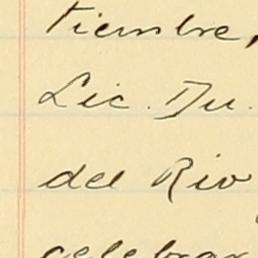 tiembre,
Lic. Du.
del Rio
celebrar